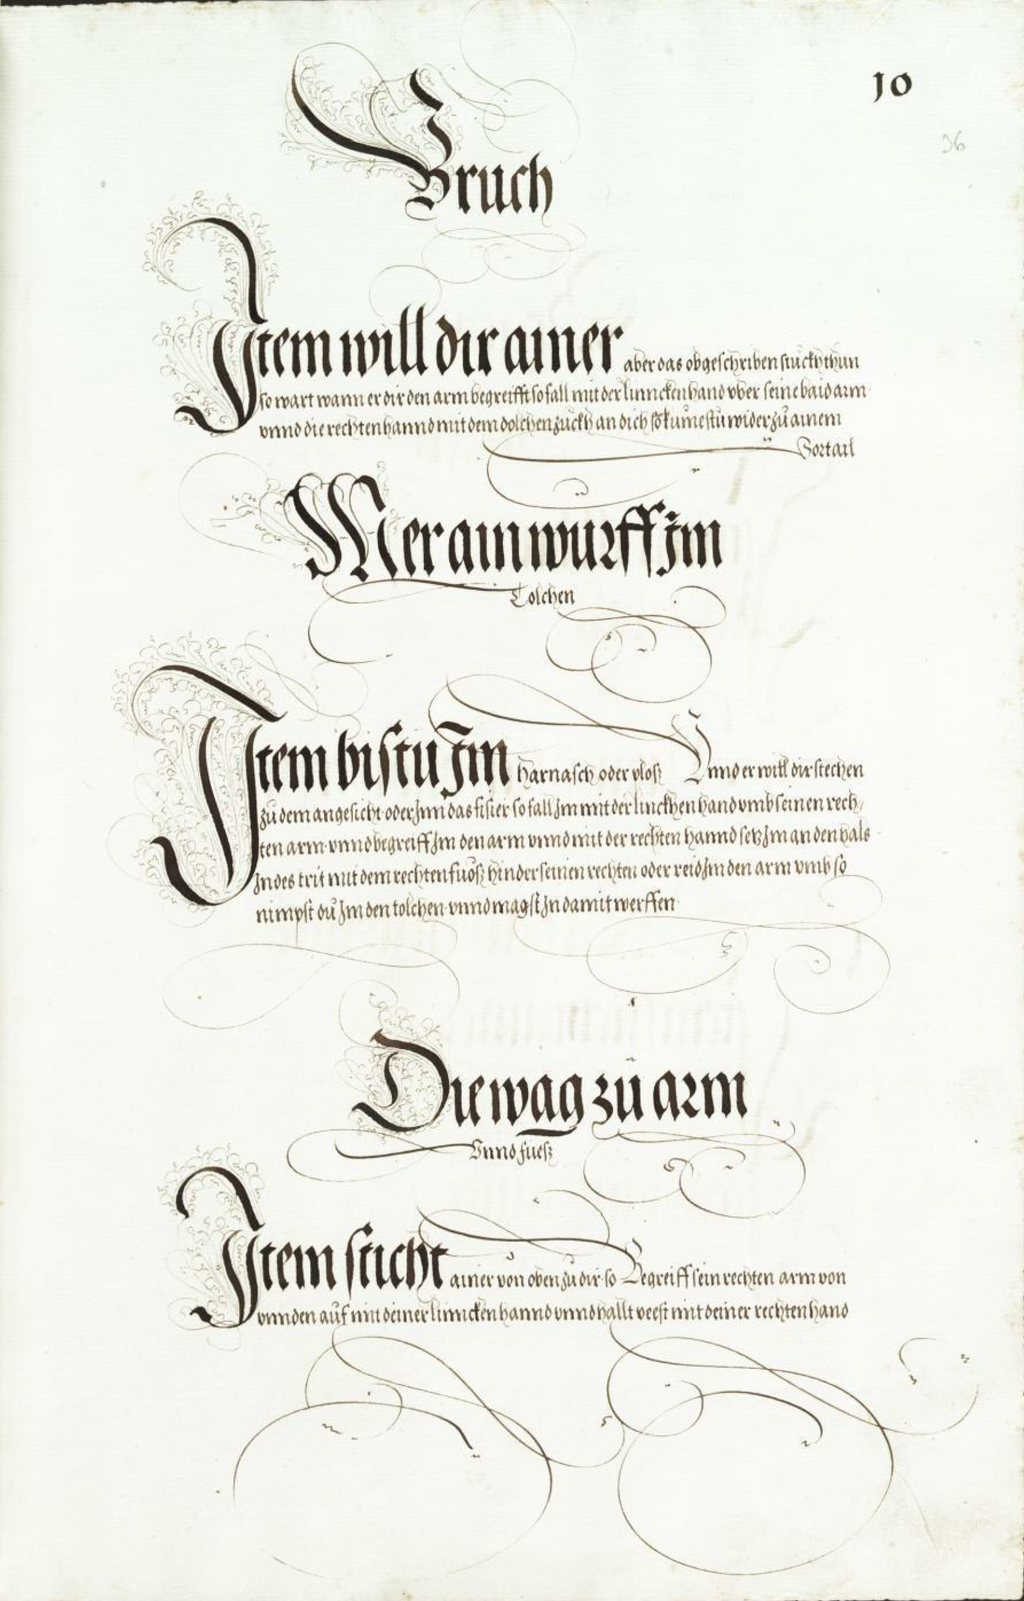 10
36
Bruch
Item will dir ainer aber das obgeschriben stuckh thun
so wart wann er dir den arm begreifft so fall mit der linncken hand vber seine baid arm
vnnd die rechten hannd mit dem dolchen zuckh an dich so kumestu wider zu ainem
Vortail
Mer ain wurff Jm
Tolchen
Item bistu Jm Harnasch oder plosz Vnnd er will dir stechen
zu dem angesicht oder Jnn das fisier so fall Jm mit der linckhen hand vmb seinen rech/
ten arm vnnd begreiff Jm den arm vnnd mit der rechten hannd setz Jm an den hals
Jndes trit mit dem rechten fuosz hinder seinen rechten oder reid Jm den arm vmb so
nimpst du Jm den tolchen vnnd magst Jn damit werffen
Die wag zu arm
Vnnd fuesz
Item sticht ainer von oben zu dir so Begreiff sein rechten arm von
vnnden auf mit deiner linncken hannd vnnd hallt veest mit deiner rechten hand